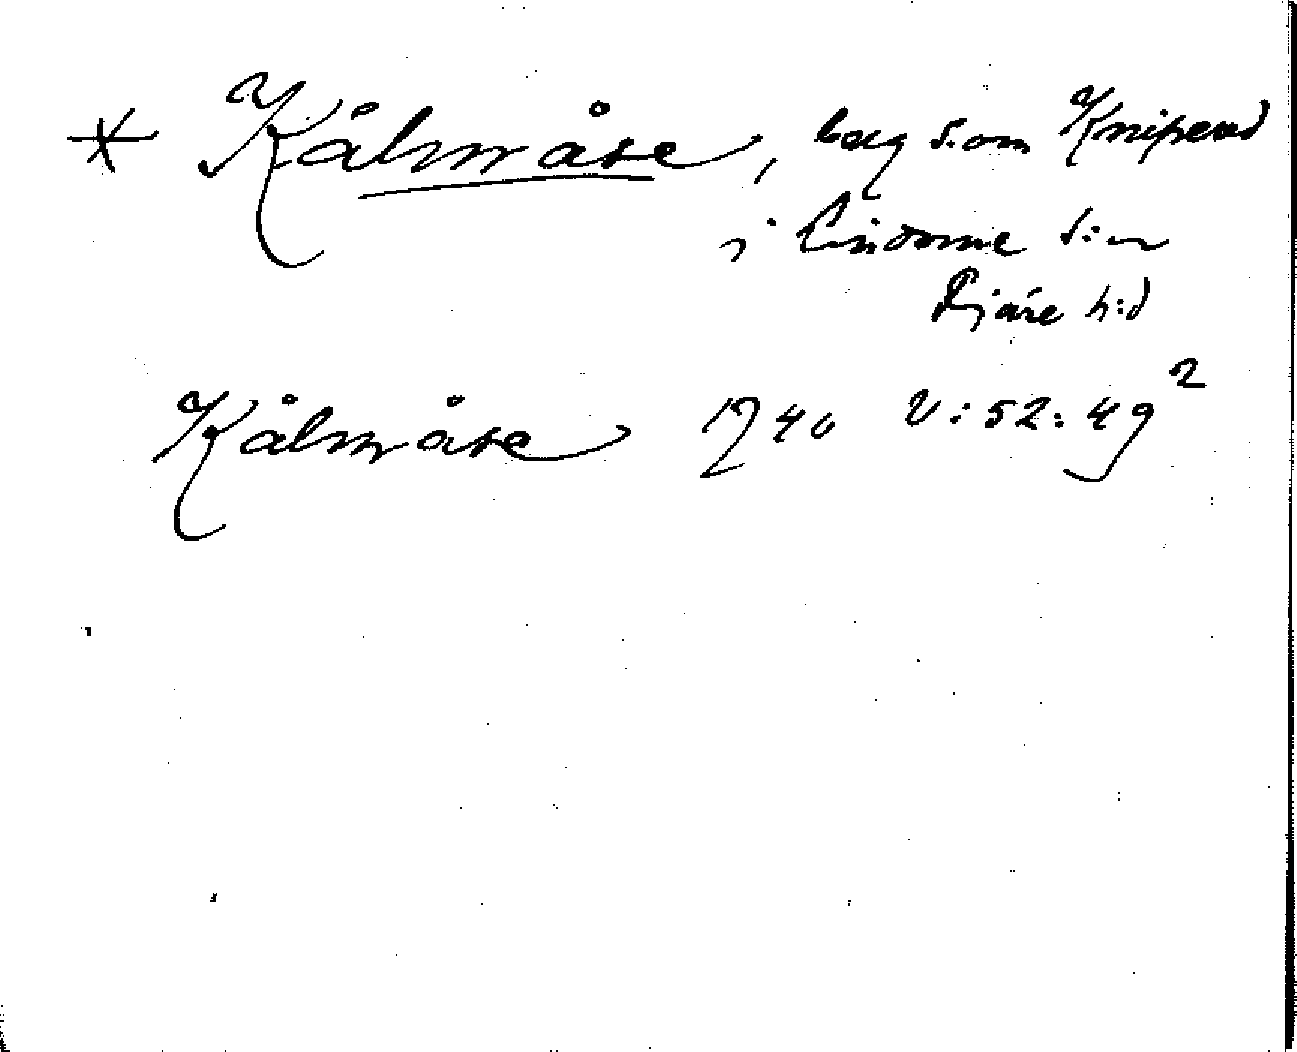 * Kålmåse, berg S. om Knipered
i Lindome s:n
Fjäre h:d
Kålmåse 1740 V:52:49²